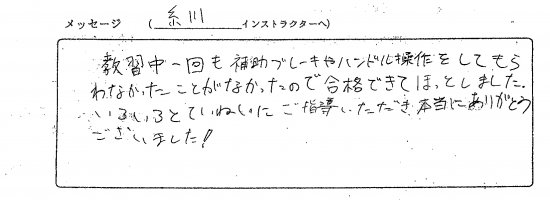 メッセージ (糸川インストラクターへ)
教習中一回も補助ブレーキやハンドル操作をしてもら
わなかったことがなかったので合格できてほっとしました。
いろいろとていねいにご指導いただき本当にありがとう
ございました!